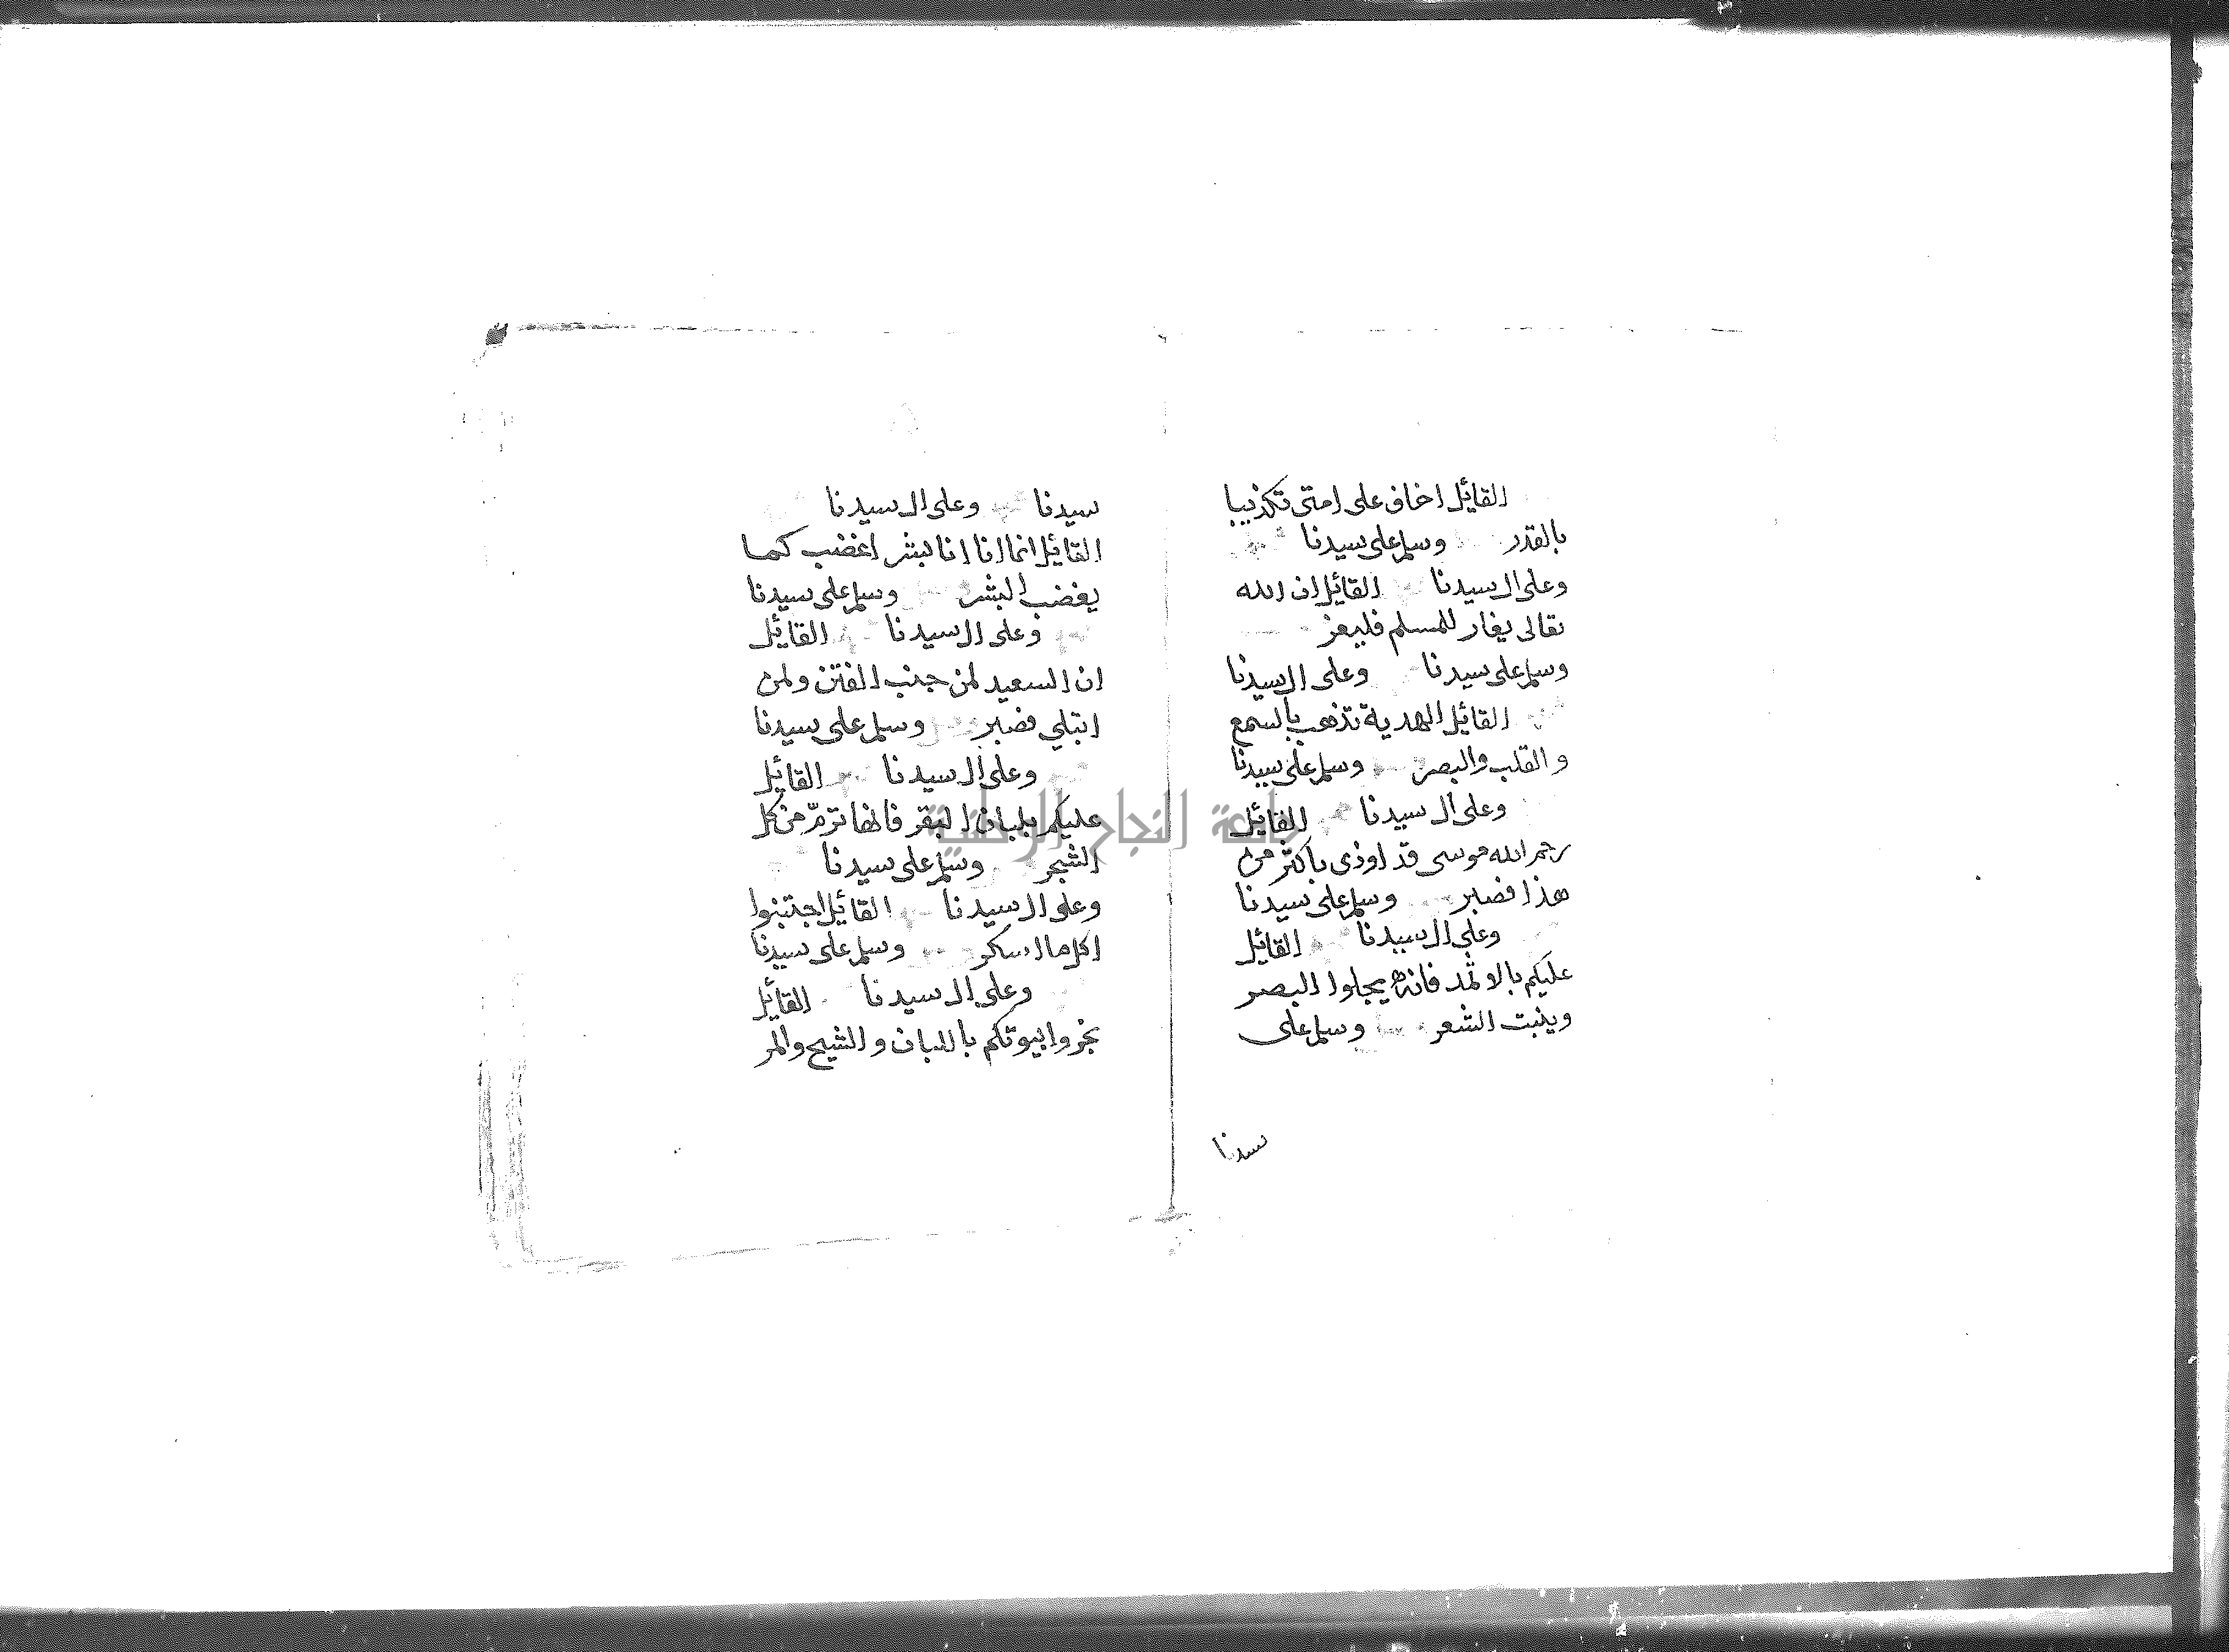 القائل اخاف على امتي تكذيبا
بالقدر وسلم على سيدنا
وعلى ال سيدنا القائل ان الله
تعالى يغار للمسلم فليغر
وسلم على سيدنا وعلى ال سيدنا
القائل الهدية تذهب بالسمع
والقلب والبصر وسلم على سيدنا
وعلى ال سيدنا القائل
رحم الله موسى قد اوذى باكثر من
هذا فصبر وسلم على سيدنا
وعلى ال سيدنا القائل
عليكم بالاثمد فانه يجلوا البصر
وينبت الشعر وسلم على
سيدنا
سيدنا وعلى ال سيدنا
القائل انما انا بشر اغضب كما
يغضب البشر وسلم على سيدنا
وعلى ال سيدنا القائل
ان السعيد لمن جنب الفتن ولمن
ابتلي فصبر وسلم على سيدنا
وعلى ال سيدنا القائل
عليكم بلبان البقر فانها ترم من كل
الشجر وسلم على سيدنا
وعلى ال سيدنا القائل اجتنبوا
كل ما اسكر وسلم على سيدنا
وعلى ال سيدنا القائل
بخروا بيوتكم باللبان والشيح والمر
جامعة النجاح الوطنية